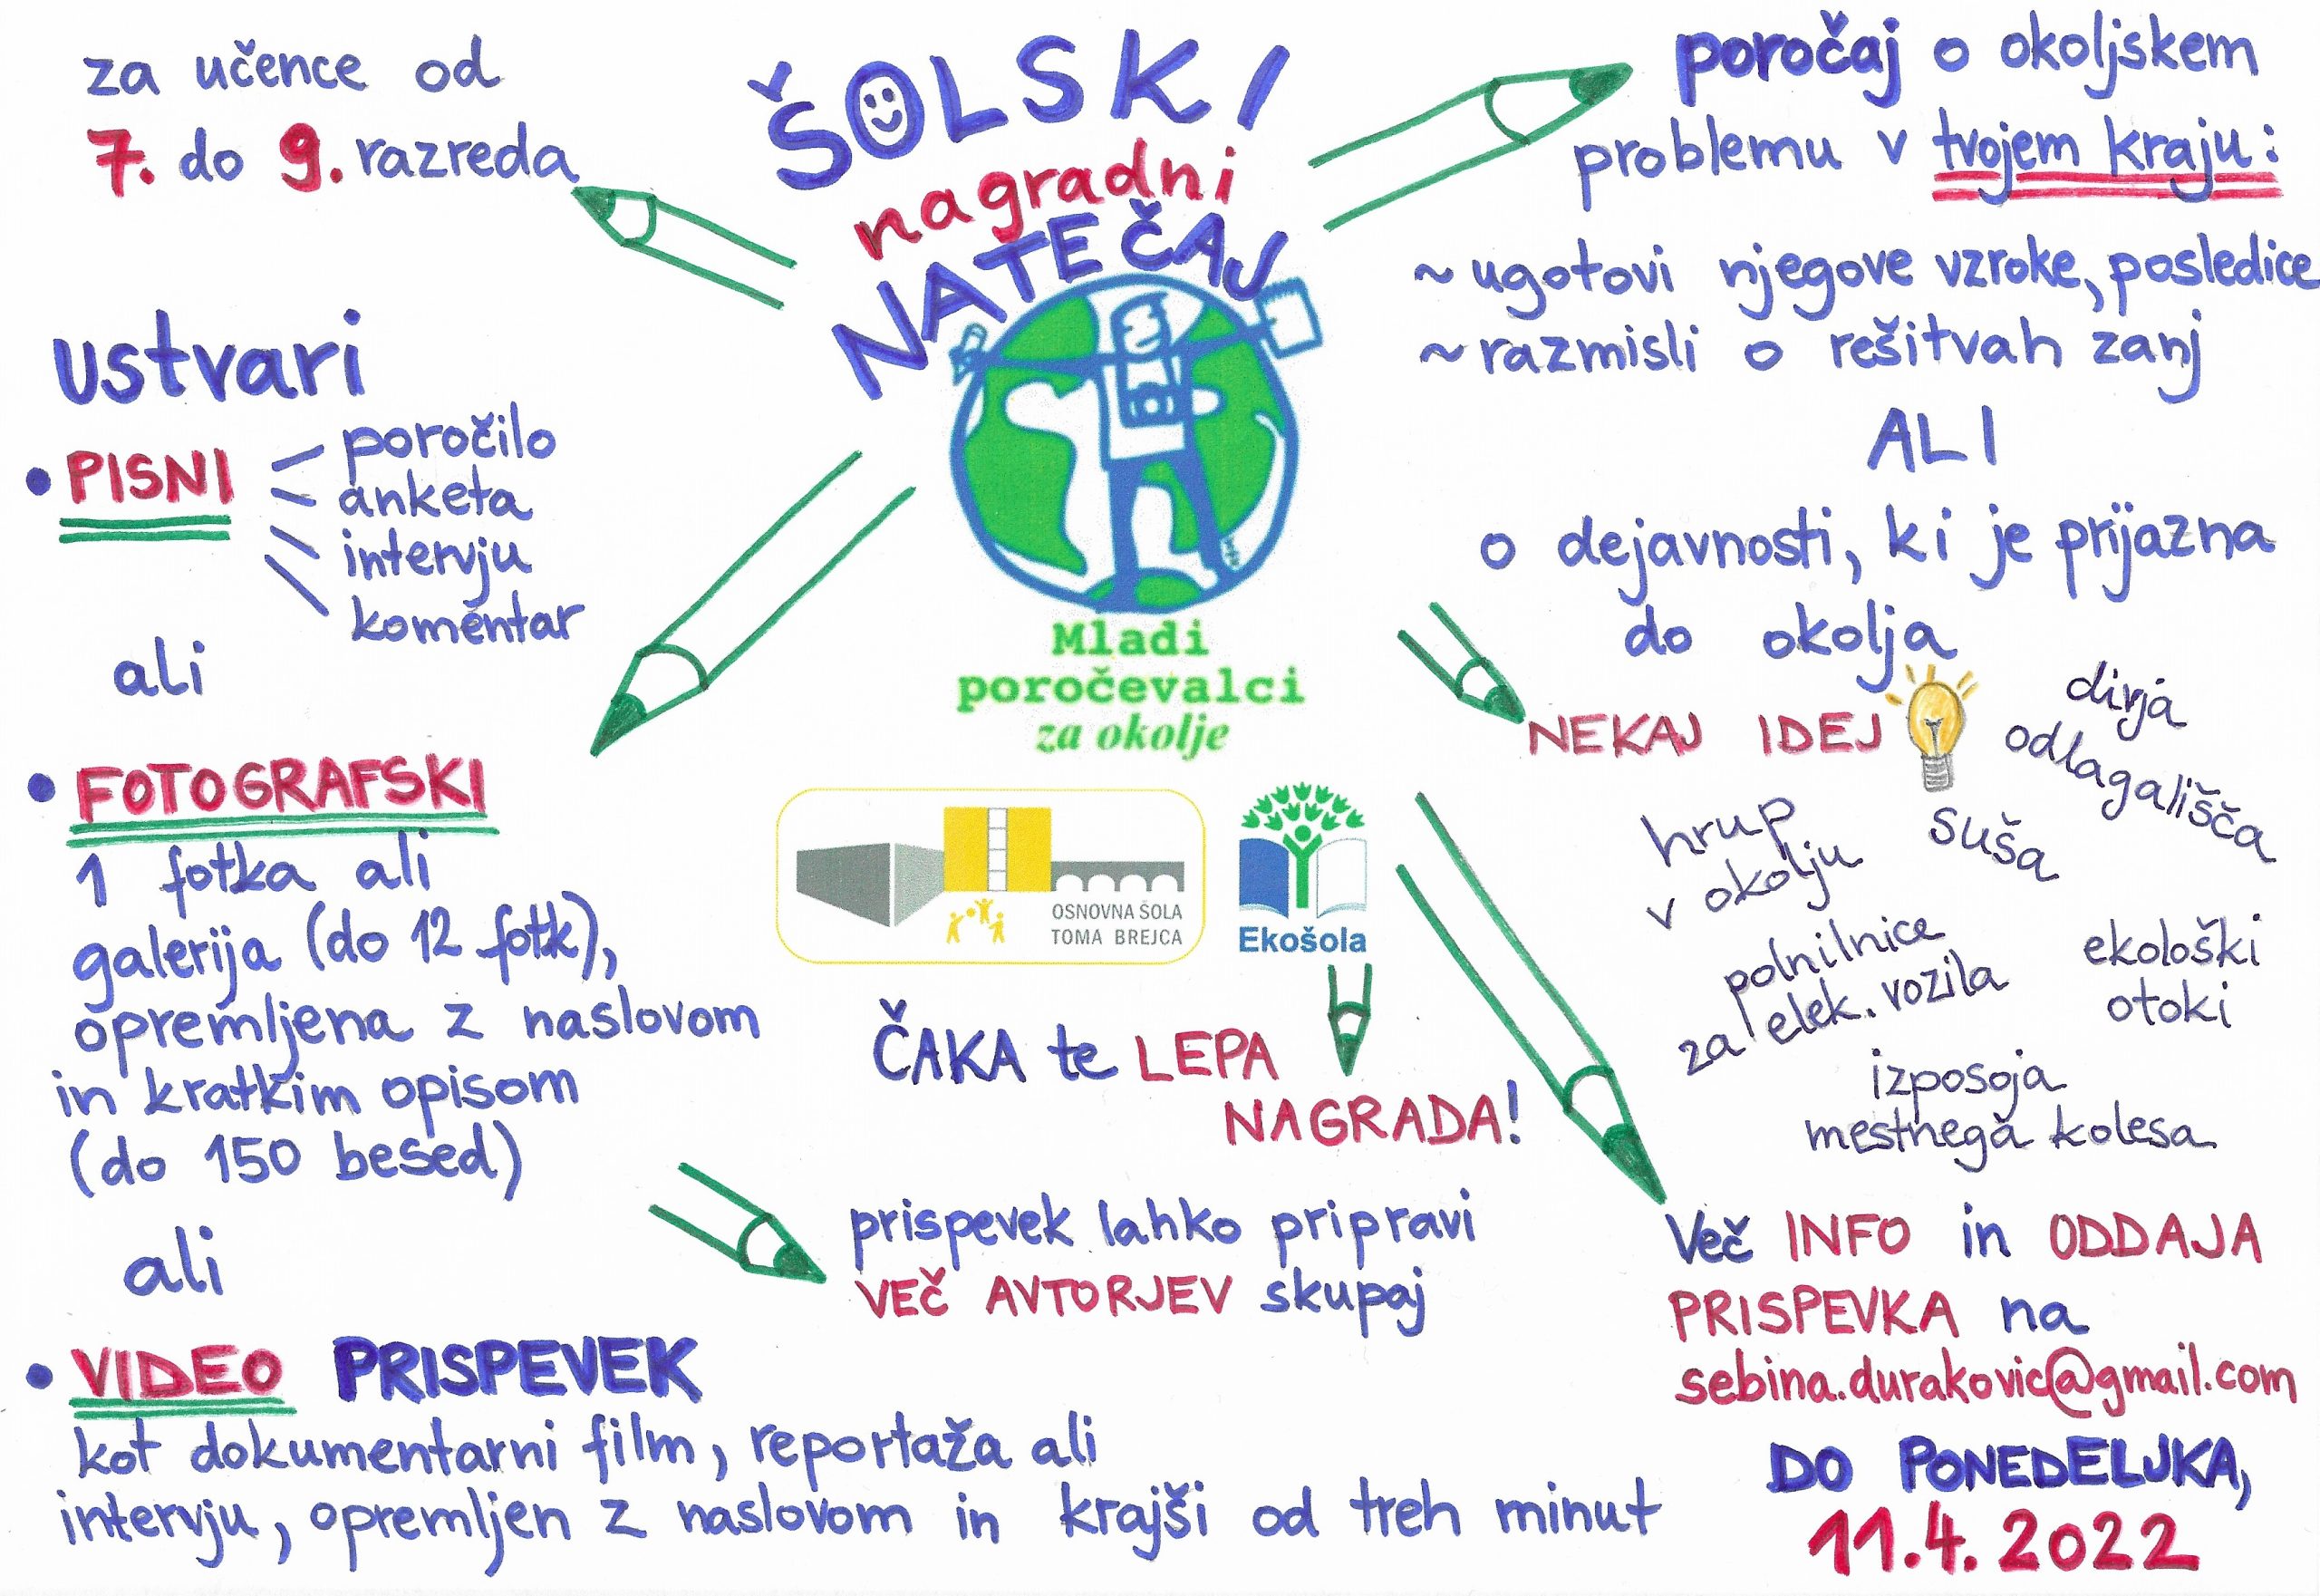 ŠOLSKI
nagradni
NATEČAJ
Mladi
poročevalci
za okolje
OSNOVNA ŠOLA
TOMA BREJCA
Ekošola
za učence od
7. do 9. razreda
ustvari
• PISNI
poročilo
anketa
intervju
komentar
ali
• FOTOGRAFSKI
1 fotka ali
galerija (do 12 fotk),
opremljena z naslovom
in kratkim opisom
(do 150 besed)
ali
• VIDEO PRISPEVEK
kot dokumentarni film, reportaža ali
intervju, opremljen z naslovom in krajši od treh minut
poročaj o okoljskem
problemu v tvojem kraju:
~ugotovi njegove vzroke, posledice
~razmisli o rešitvah zanj
ALI
o dejavnosti, ki je prijazna
do okolja
NEKAJ IDEJ
divja
odlagališča
hrup
v okolju
suša
polnilnice
za elek. vozila
ekološki
otoki
izposoja
mestnega kolesa
ČAKA te LEPA
NAGRADA!
prispevek lahko pripravi
VEČ AVTORJEV skupaj
Več INFO in ODDAJA
PRISPEVKA na
sebina.durakovic@gmail.com
DO PONEDELJKA,
11.4.2022